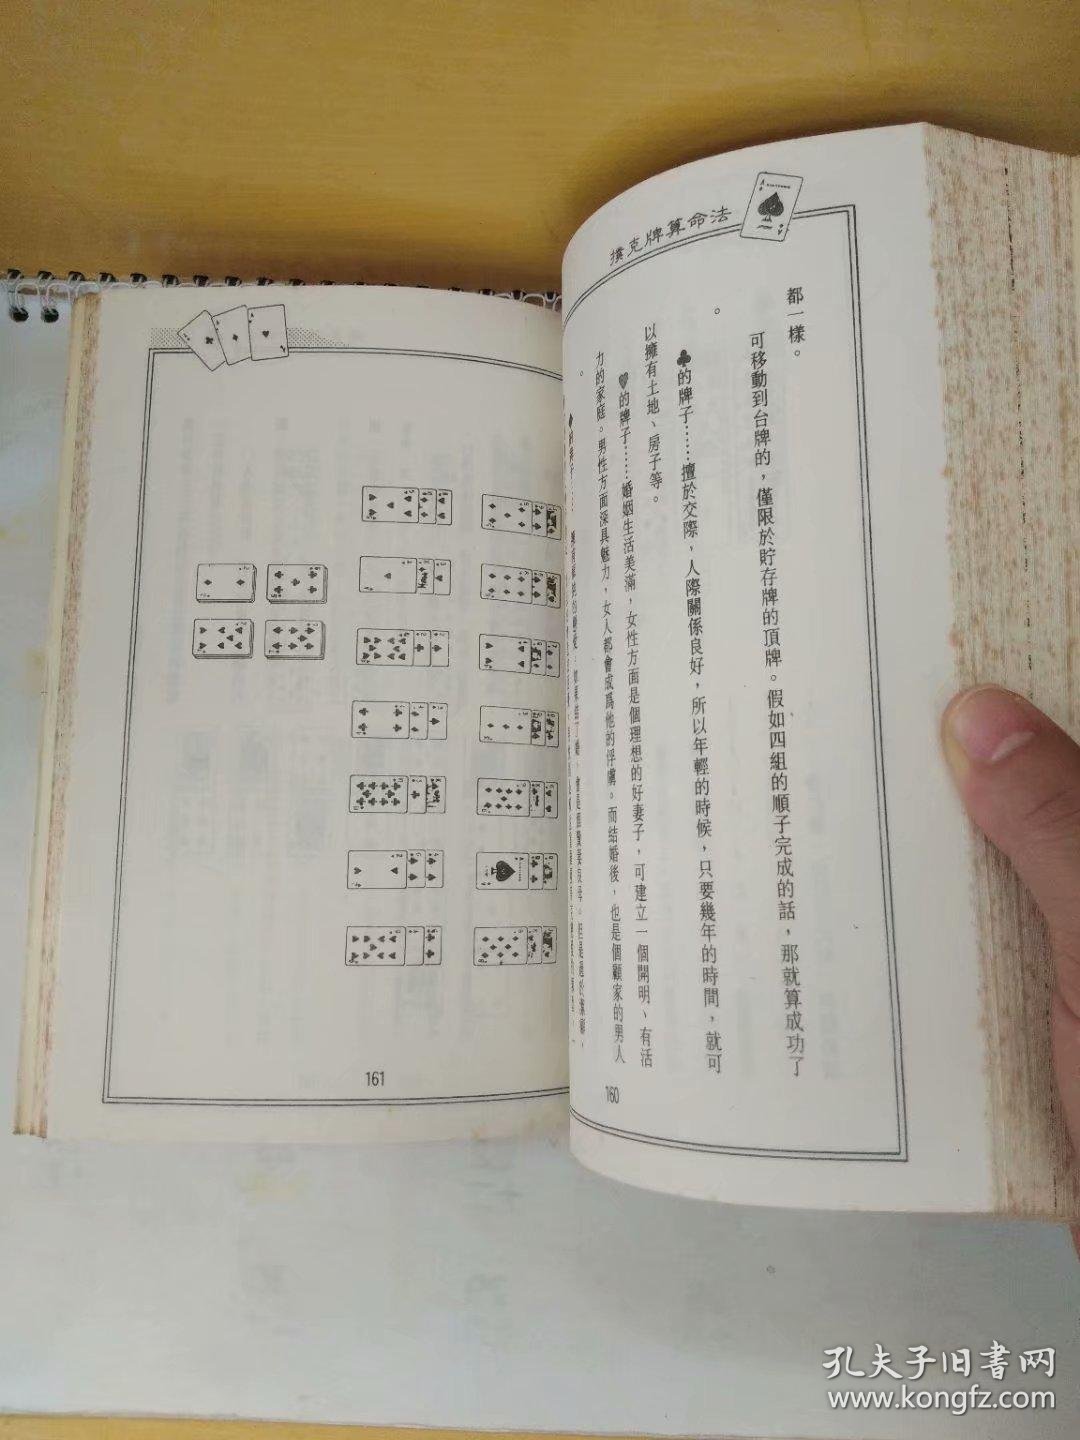 撲克牌算命法
都一樣。
可移動到台牌的，僅限於貯存牌的頂牌。假如四組的順子完成的話，那就算成功了
。
♣的牌子……擅於交際，人際關係良好，所以年輕的時候，只要幾年的時間，就可
以擁有土地、房子等。
♥的牌子……婚姻生活美滿，女性方面是個理想的好妻子，可建立一個開明、有活
力的家庭。男性方面深具魅力，女人都會成爲他的俘虜。而結婚後，也是個顧家的男人
。
160
161
孔夫子旧書网
www.kongfz.com